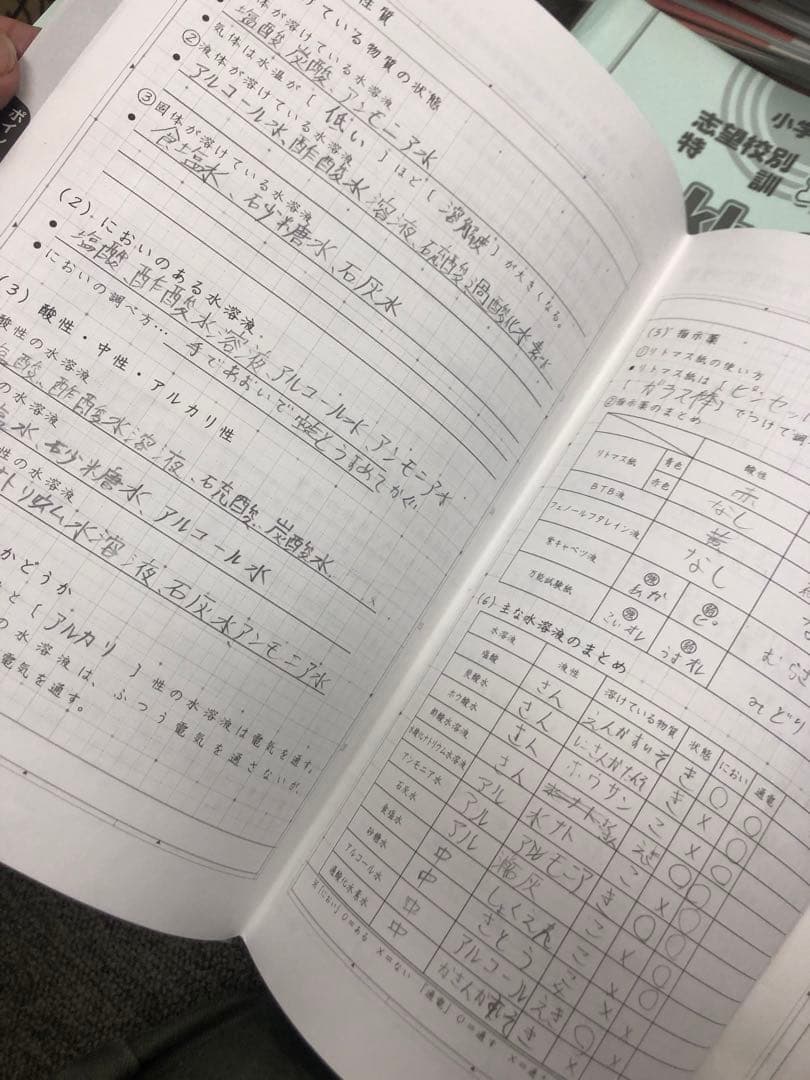 性質
けている物質の状態
体が溶けている水溶液
塩酸、炭酸、アンモニア水
気体は水温が[低い]ほど[溶解度]が大きくなる。
②液体が溶けている水溶液
アルコール水、酢酸水溶液、硫酸、過酸化水素水
③固体が溶けている水溶液
食塩水、石少糖水、石灰水
(2) においのある水溶液
塩酸、酢酸水溶液、アルコール水、アンモニア水
においの調べ方…手であおいで
うすめてかぐ
(3) 酸性・中性・アルカリ性
酸性の水溶液
塩酸、酢酸水溶液、石硫酸、炭酸水
の水溶液
塩水、石少糖水、アルコール水
性の水溶液
ナトリウム水溶液、石灰水、アンモニア水
かどうか
と[アルカリ]性の水溶液は電気を通す。
の水溶液は、ふつう電気を通さないが、
電気を通す。
ポイン
小学
志望校別
特訓
(5) 指示薬
①リトマス紙の使い方
リトマス紙は[ピンセット
[ガラス棒]でつけて調
②指示薬のまとめ
酸性
リトマス紙 青色 赤
赤色 なし
BTB液 黄
フェノールフタレイン液 なし
紫キャベツ液 強 あか 弱 ピ
むらさき
万能試験紙 強 こいオレ 弱 うすオレ みどり
(6) 主な水溶液のまとめ
水溶液 液性 溶けている物質 状態 におい 通電
塩酸 さん えんかすいそ き ○ ○
炭酸水 さん にさんかたんそ き × ○
ホウ酸水 さん ホウサン こ × ○
酢酸水溶液 さん
水酸化ナトリウム水溶液 アル 水ナト こ × ○
アンモニア水 アル アンモニア き ○ ○
石灰水 アル 消灰 こ × ○
食塩水 中 しょくえん こ × ○
砂糖水 中 さとう こ × ×
アルコール水 中 アルコール えき ○ ×
過酸化水素水 中 × ×
※「におい」○=ある ×=ない 「通電」○=通す ×=通さ